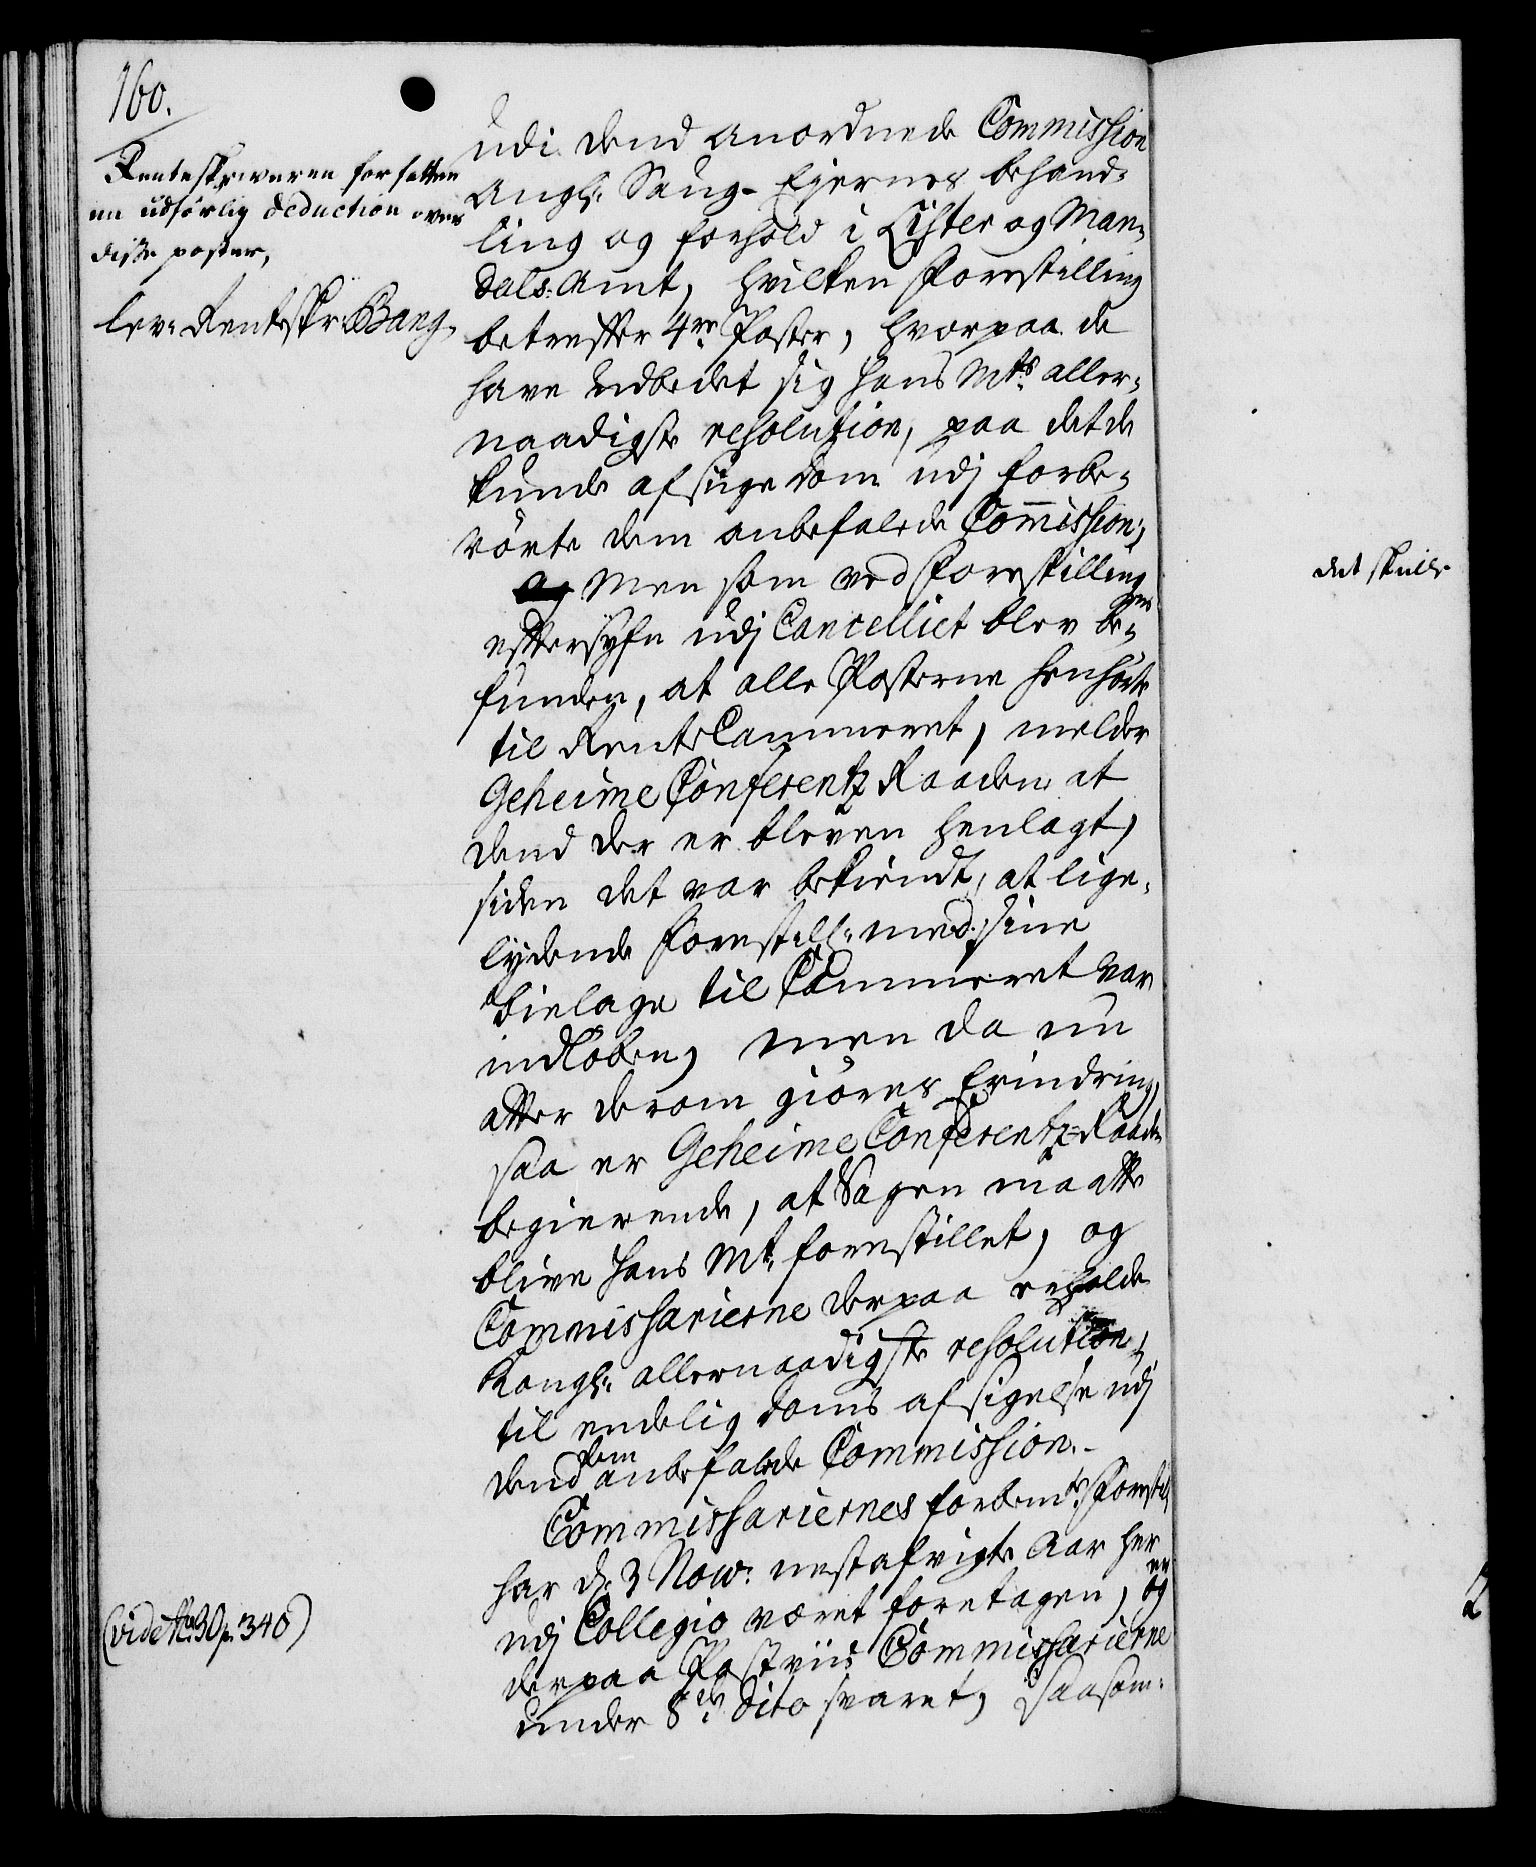 160.
Renteskriveren forfatter
en udførlig deduction over
disse poster,
lev: Renteskr: Bang.
udi dend anordnede Commission
angl: Saug-Ejernes behand-
ling og forhold i Lister og Man-
dals: Amt, hvilken Forestilling
betreffer 4re Poster, hvorpaa de
have udbedet sig Hans Mts aller-
naadigste resolution, paa det de
kunde afsige dom udj forbe-
rörte dem anbefalede Commission;
og Men som ved Forestillingens
eftersyn udj Cancelliet blev be-
funden, at alle Posterne henhörte
til RenteCammeret, melder
Geheime Conferentz Raaden at
dend der er bleven henlagt,
siden det var bekiendt, at lige-
lydende Forestill: med sine
bielage til Cammeret var
indkoben, men da nu
atter derom giöres Erindring,
saa er Geheime Conferentz-Raaden
begierende, at Sagen maatte
blive Hans Mt. forestillet, og
Commissarierne derpaa erholde
Kongl: allernaadigste resolution,
til endelig doms afsigelse udj
dend dem anbefalede Commission.-
Commissariernes forbemte Forestil
har d. 3 Nov: nestafvigte Aar her
udj Collegio været foretagen, og er
derpaa Postviis Commissarierne
under 8de dito svaret, saasom:
(vide No. 30 p. 340)
det skulle